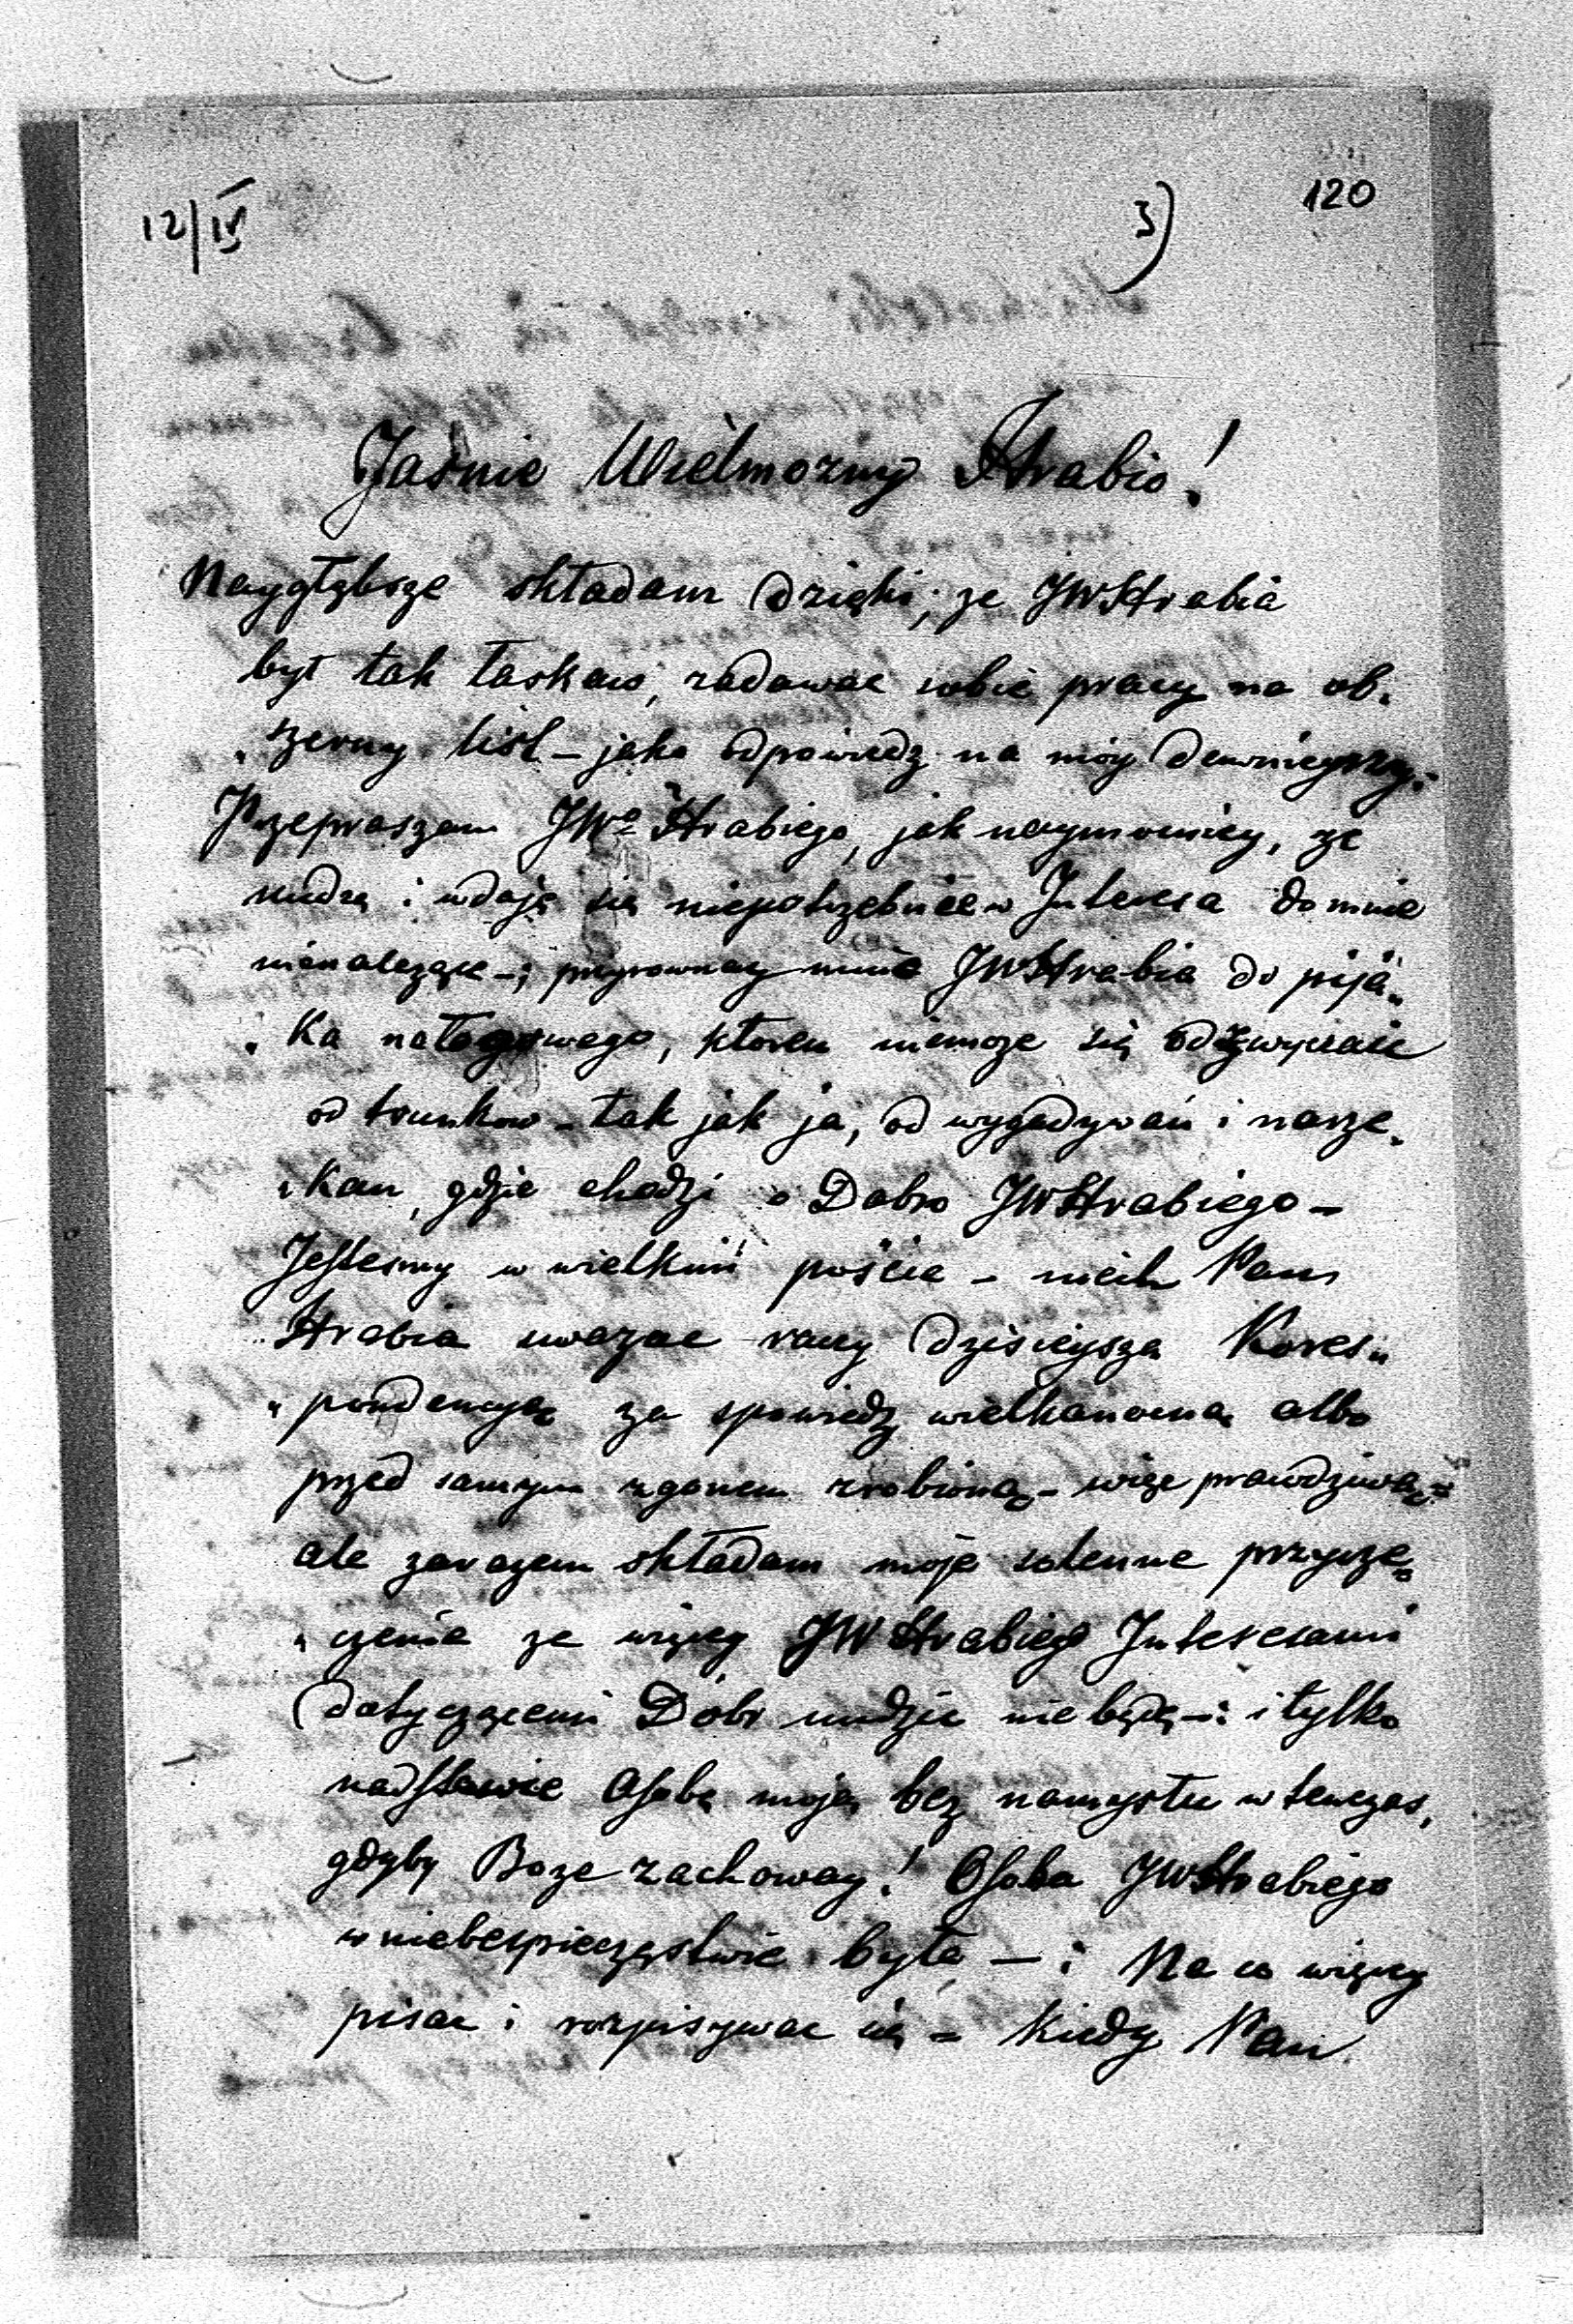 12/IV
3)
120
Jaśnie Wielmozny Hrabio!
Naygłębsze składam dzięki, ze JWHrabia
był tak łaskaw, zadawac sobie pracy na ob„
„szerny list – jako odpowiedz na móy dawnieyszy.
Przepraszam JWo Hrabiego, jak naymocniey, ze
nudzę i wdaję się niepotrzebnie w Interesa do mnie
nienalezące –; przyrownay mnie JWHrabia do pija„
„ka nałogowego, ktoren niemoze się odzwyczaic
od trunkow – tak jak ja, od wygadywań i narze„
„kan, gdzie chodzi o Dobro JWHrabiego –
Jestesmy w wielkim pośćie – niech Pan
Hrabia uwazac raczy dzisieysza Kores„
„pondencyę za spowiedz wielkanocną albo
przed samym zgonem zrobioną – więc prawdziwą –
ale zarazem składam moje solenne przyrze„
„czenie ze więcy JWHrabiego Interesami
dotyczącemi Dóbr nudzic nie będę –: i tylko
nadstawie Osobę moją bez namysłu w tenczas,
gdyby Boze zachoway! Osoba JWHrabiego
w niebespieczęstwie była – : Na co więcy
pisac i rozpisywac się – kiedy Pan